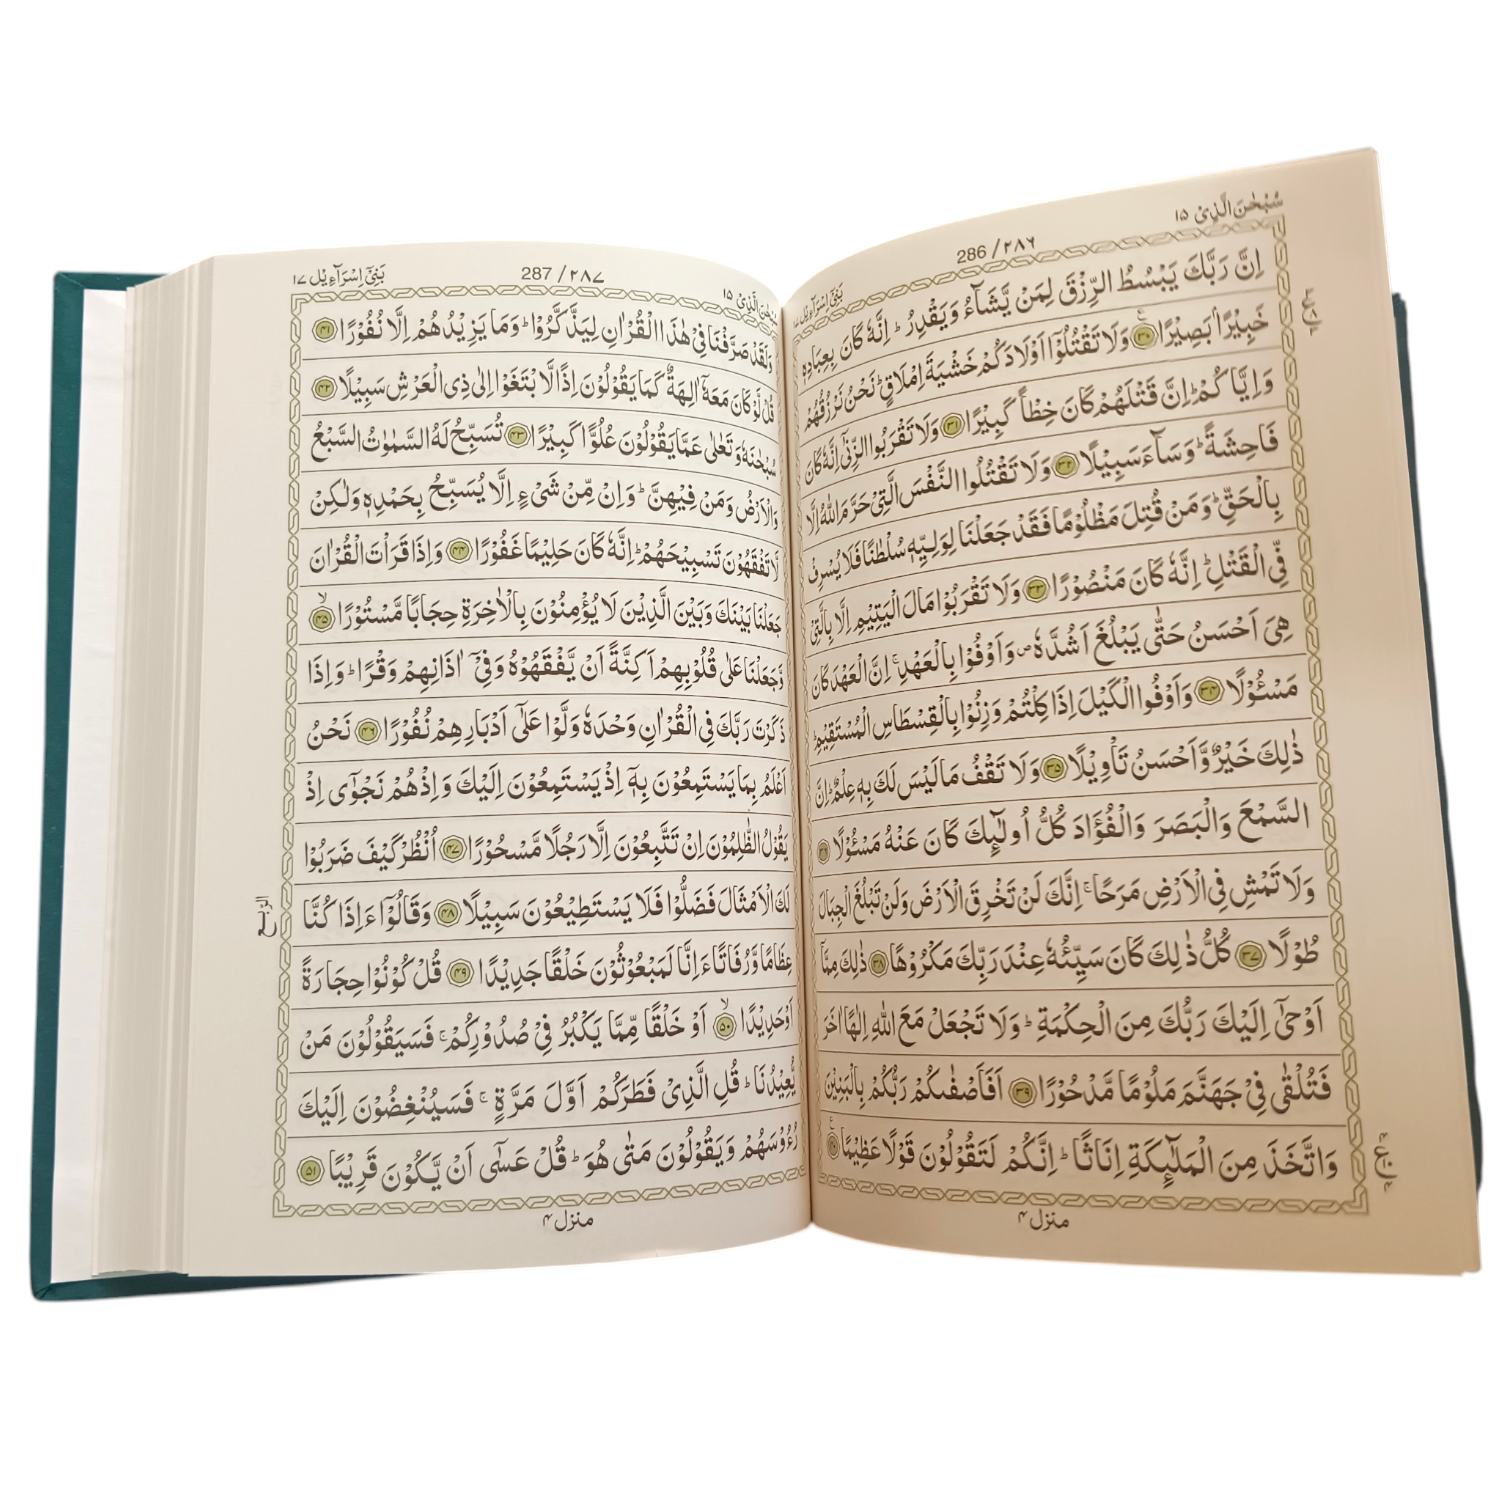 سُبْحٰنَ الَّذِيْ ١٥
286 / ٢٨٦
بَنِيْٓ اِسْرَآءِيْل ١٧
اِنَّ رَبَّكَ يَبْسُطُ الرِّزْقَ لِمَنْ يَّشَآءُ وَيَقْدِرُ ؕ اِنَّهٗ كَانَ بِعِبَادِهٖ
خَبِيْرًۢا بَصِيْرًا ﴿٣٠﴾ وَلَا تَقْتُلُوْٓا اَوْلَادَكُمْ خَشْيَةَ اِمْلَاقٍ ؕ نَحْنُ نَرْزُقُهُمْ
وَاِيَّاكُمْ ؕ اِنَّ قَتْلَهُمْ كَانَ خِطْاً كَبِيْرًا ﴿٣١﴾ وَلَا تَقْرَبُوا الزِّنٰٓى اِنَّهٗ كَانَ
فَاحِشَةً ؕ وَسَآءَ سَبِيْلًا ﴿٣٢﴾ وَلَا تَقْتُلُوا النَّفْسَ الَّتِيْ حَرَّمَ اللّٰهُ اِلَّا
بِالْحَقِّ ؕ وَمَنْ قُتِلَ مَظْلُوْمًا فَقَدْ جَعَلْنَا لِوَلِيِّهٖ سُلْطٰنًا فَلَا يُسْرِفْ
فِّي الْقَتْلِ ؕ اِنَّهٗ كَانَ مَنْصُوْرًا ﴿٣٣﴾ وَلَا تَقْرَبُوْا مَالَ الْيَتِيْمِ اِلَّا بِالَّتِيْ
هِيَ اَحْسَنُ حَتّٰى يَبْلُغَ اَشُدَّهٗ ۪ وَاَوْفُوْا بِالْعَهْدِ ۚ اِنَّ الْعَهْدَ كَانَ
مَسْـُٔوْلًا ﴿٣٤﴾ وَاَوْفُوا الْكَيْلَ اِذَا كِلْتُمْ وَزِنُوْا بِالْقِسْطَاسِ الْمُسْتَقِيْمِ ؕ
ذٰلِكَ خَيْرٌ وَّاَحْسَنُ تَاْوِيْلًا ﴿٣٥﴾ وَلَا تَقْفُ مَا لَيْسَ لَكَ بِهٖ عِلْمٌ ؕ اِنَّ
السَّمْعَ وَالْبَصَرَ وَالْفُؤَادَ كُلُّ اُولٰٓئِكَ كَانَ عَنْهُ مَسْـُٔوْلًا ﴿٣٦﴾
وَلَا تَمْشِ فِي الْاَرْضِ مَرَحًا ۚ اِنَّكَ لَنْ تَخْرِقَ الْاَرْضَ وَلَنْ تَبْلُغَ الْجِبَالَ
طُوْلًا ﴿٣٧﴾ كُلُّ ذٰلِكَ كَانَ سَيِّئُهٗ عِنْدَ رَبِّكَ مَكْرُوْهًا ﴿٣٨﴾ ذٰلِكَ مِمَّآ
اَوْحٰٓى اِلَيْكَ رَبُّكَ مِنَ الْحِكْمَةِ ؕ وَلَا تَجْعَلْ مَعَ اللّٰهِ اِلٰهًا اٰخَرَ
فَتُلْقٰى فِيْ جَهَنَّمَ مَلُوْمًا مَّدْحُوْرًا ﴿٣٩﴾ اَفَاَصْفٰىكُمْ رَبُّكُمْ بِالْبَنِيْنَ
وَاتَّخَذَ مِنَ الْمَلٰٓئِكَةِ اِنَاثًا ؕ اِنَّكُمْ لَتَقُوْلُوْنَ قَوْلًا عَظِيْمًا ﴿٤٠﴾
منزل ٤
سُبْحٰنَ الَّذِيْ ١٥
287 / ٢٨٧
بَنِيْٓ اِسْرَآءِيْل ١٧
وَلَقَدْ صَرَّفْنَا فِيْ هٰذَا الْقُرْاٰنِ لِيَذَّكَّرُوْا ؕ وَمَا يَزِيْدُهُمْ اِلَّا نُفُوْرًا ﴿٤١﴾
قُلْ لَّوْ كَانَ مَعَهٗٓ اٰلِهَةٌ كَمَا يَقُوْلُوْنَ اِذًا لَّابْتَغَوْا اِلٰى ذِي الْعَرْشِ سَبِيْلًا ﴿٤٢﴾
سُبْحٰنَهٗ وَتَعٰلٰى عَمَّا يَقُوْلُوْنَ عُلُوًّا كَبِيْرًا ﴿٤٣﴾ تُسَبِّحُ لَهُ السَّمٰوٰتُ السَّبْعُ
وَالْاَرْضُ وَمَنْ فِيْهِنَّ ؕ وَاِنْ مِّنْ شَيْءٍ اِلَّا يُسَبِّحُ بِحَمْدِهٖ وَلٰكِنْ
لَّا تَفْقَهُوْنَ تَسْبِيْحَهُمْ ؕ اِنَّهٗ كَانَ حَلِيْمًا غَفُوْرًا ﴿٤٤﴾ وَاِذَا قَرَاْتَ الْقُرْاٰنَ
جَعَلْنَا بَيْنَكَ وَبَيْنَ الَّذِيْنَ لَا يُؤْمِنُوْنَ بِالْاٰخِرَةِ حِجَابًا مَّسْتُوْرًا ۙ﴿٤٥﴾
وَّجَعَلْنَا عَلٰى قُلُوْبِهِمْ اَكِنَّةً اَنْ يَّفْقَهُوْهُ وَفِيْٓ اٰذَانِهِمْ وَقْرًا ؕ وَاِذَا
ذَكَرْتَ رَبَّكَ فِي الْقُرْاٰنِ وَحْدَهٗ وَلَّوْا عَلٰٓى اَدْبَارِهِمْ نُفُوْرًا ﴿٤٦﴾ نَحْنُ
اَعْلَمُ بِمَا يَسْتَمِعُوْنَ بِهٖٓ اِذْ يَسْتَمِعُوْنَ اِلَيْكَ وَاِذْ هُمْ نَجْوٰٓى اِذْ
يَقُوْلُ الظّٰلِمُوْنَ اِنْ تَتَّبِعُوْنَ اِلَّا رَجُلًا مَّسْحُوْرًا ﴿٤٧﴾ اُنْظُرْ كَيْفَ ضَرَبُوْا
لَكَ الْاَمْثَالَ فَضَلُّوْا فَلَا يَسْتَطِيْعُوْنَ سَبِيْلًا ﴿٤٨﴾ وَقَالُوْٓا ءَاِذَا كُنَّا
عِظَامًا وَّرُفَاتًا ءَاِنَّا لَمَبْعُوْثُوْنَ خَلْقًا جَدِيْدًا ﴿٤٩﴾ قُلْ كُوْنُوْا حِجَارَةً
اَوْ حَدِيْدًا ۙ﴿٥٠﴾ اَوْ خَلْقًا مِّمَّا يَكْبُرُ فِيْ صُدُوْرِكُمْ ۚ فَسَيَقُوْلُوْنَ مَنْ
يُّعِيْدُنَا ؕ قُلِ الَّذِيْ فَطَرَكُمْ اَوَّلَ مَرَّةٍ ۚ فَسَيُنْغِضُوْنَ اِلَيْكَ
رُءُوْسَهُمْ وَيَقُوْلُوْنَ مَتٰى هُوَ ؕ قُلْ عَسٰٓى اَنْ يَّكُوْنَ قَرِيْبًا ﴿٥١﴾
الربع
منزل ٤